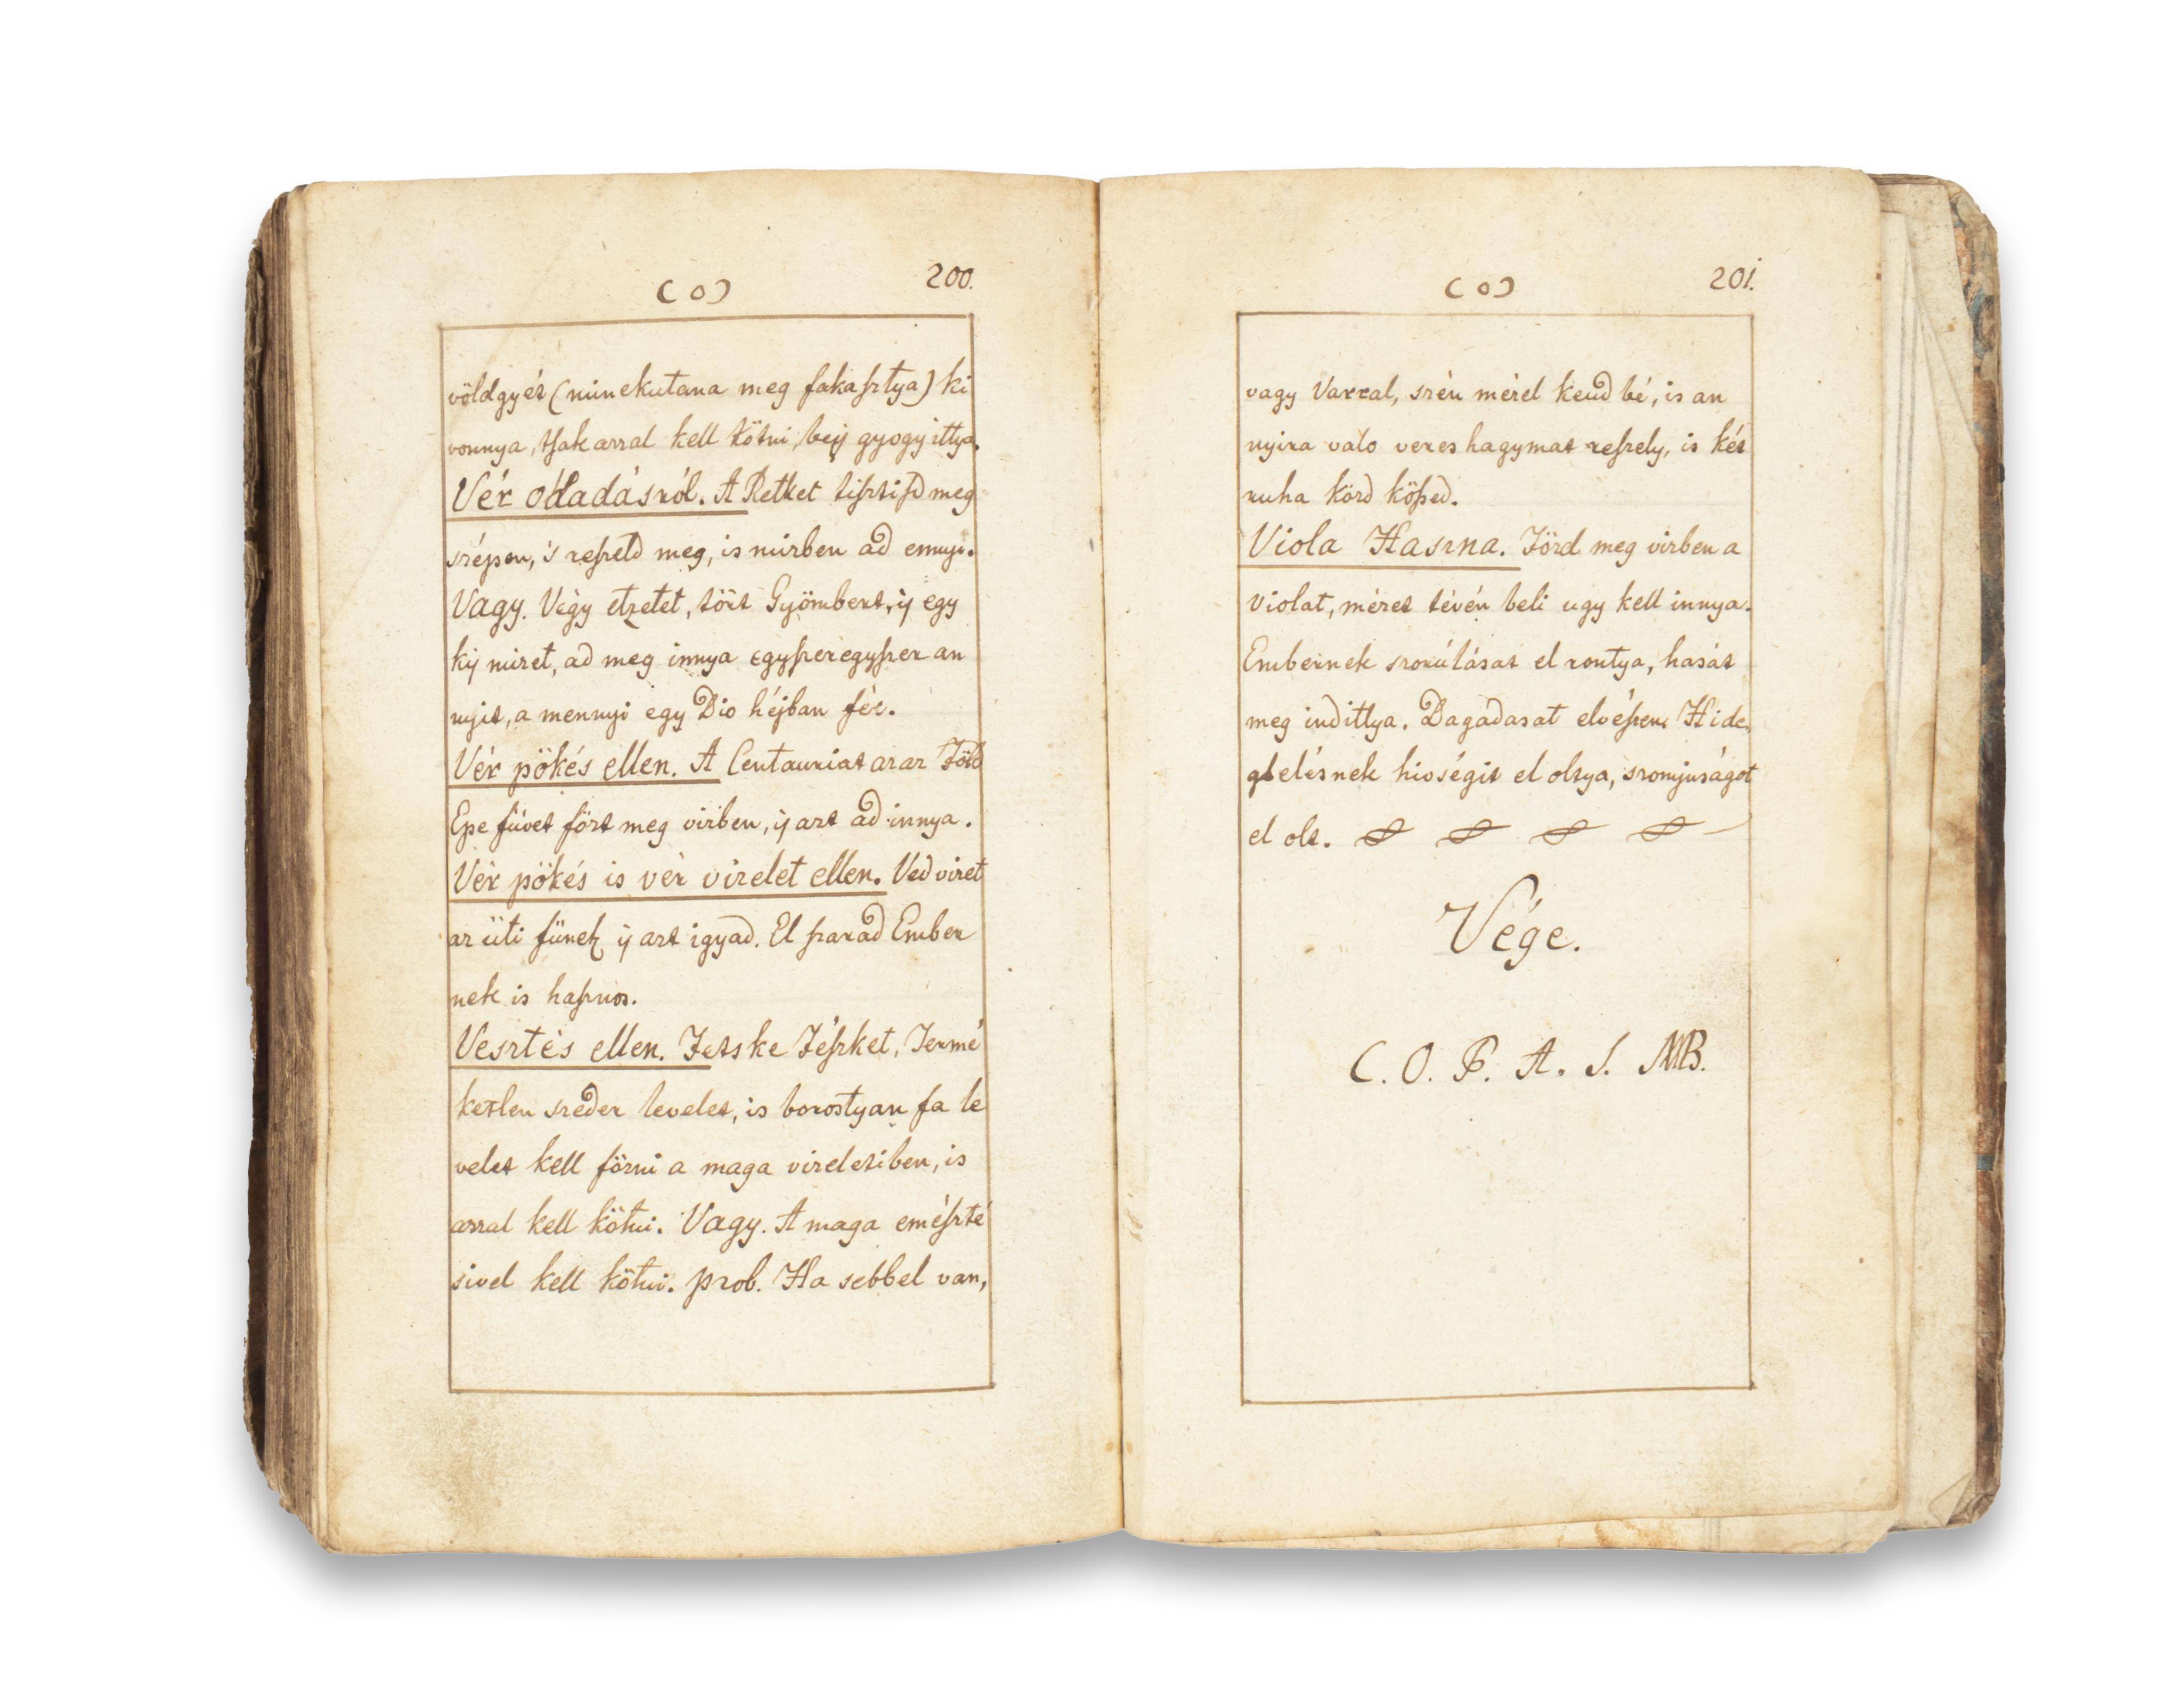 (0) 200.
völdgyét (minekutana meg fakasztya) ki
vonnya, tsak azzal kell kötni, beij gyogyittya.
Vér óladásról. A Retket tisztisd meg
szépen, 's reszeld meg, is mizben ad ennyi.
Vagy. Vègy etzetet, tört Gyömbert, ij egy
kij mizet, ad meg innya egyszeregyszer an
nyit, a mennyi egy Dio héjban fér.
Vér pökés ellen. A Centauriat azaz Föld
Epe füvet főzt meg vizben, ij azt ad innya.
Vér pökés is vèr vizelet ellen. Ved vizet
az üti fünek ij azt igyad. El szarad Ember
nek is hasznos.
Vesztés ellen. Ketske Fészket, Termé
ketlen szeder levelet, is borostyan fa le
velet kell főzni a maga vizeletiben, is
azzal kell kötni. Vagy. A maga emészté
sivel kell kötni. prob. Ha sebbel van,
(0) 201.
vagy Varral, szèn mézel kend bé, is an
nyira valo veres hagymat reszely, is két
ruha közd kössed.
Viola Haszna. Törd meg vizben a
violat, mézet tévén beli ugy kell innya.
Embernek szorúlásat el rontya, hasát
meg indittya. Dagadasat elvészen. Hide
glelésnek hivségit el oltya, szomjuságot
el olt.
Vége.
C. O. P. A. S. MB.